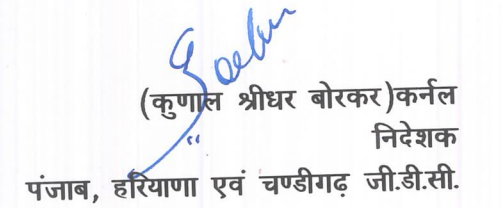 (कुणाल श्रीधर बोरकर)कर्नल
निदेशक
पंजाब, हरियाणा एवं चण्डीगढ़ जी.डी.सी.